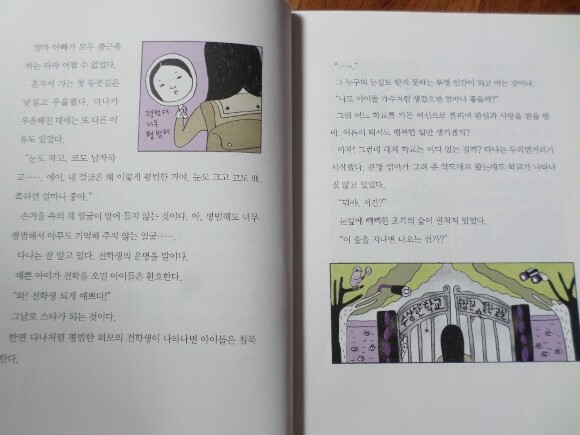 엄마 아빠가 모두 출근을
하는 터라 어쩔 수 없었다.
혼자서 가는 첫 등굣길은
낯설고 우울했다. 다나가
우울해진 데에는 또 다른 이
유도 있었다.
"눈도 작고, 코도 납작하
고……. 에이, 내 얼굴은 왜 이렇게 평범한 거야. 눈도 크고 코도 뾰
족하면 얼마나 좋아."
손거울 속의 제 얼굴이 맘에 들지 않는 것이다. 아, 평범해도 너무
평범해서 아무도 기억해 주지 않는 얼굴…….
다나는 잘 알고 있다. 전학생의 운명을 말이다.
예쁜 아이가 전학을 오면 아이들은 환호한다.
"와! 전학생 되게 예쁘다!"
그날로 스타가 되는 것이다.
반면 다나처럼 평범한 외모의 전학생이 나타나면 아이들은 침묵
한다.
평범해
너무
평범해
"……."
그 누구의 눈길도 받지 못하는 투명 인간이 되고 마는 것이다.
"나도 아이돌 가수처럼 생겼으면 얼마나 좋을까?"
그럼 어느 학교를 가든 여신으로 불리며 관심과 사랑을 받을 텐
데. 이쁜이 돼서도 행복한 일만 생기겠지?
아차! 그런데 대체 학교는 어디 있는 걸까? 다나는 두리번거리기
시작했다. 분명 엄마가 그려 준 약도대로 왔는데도 학교가 나타나
질 않고 있었다.
"뭐야, 저긴?"
눈앞에 빽빽한 초록의 숲이 펼쳐져 있었다.
"이 숲을 지나면 나오는 건가?"
수상한 학교